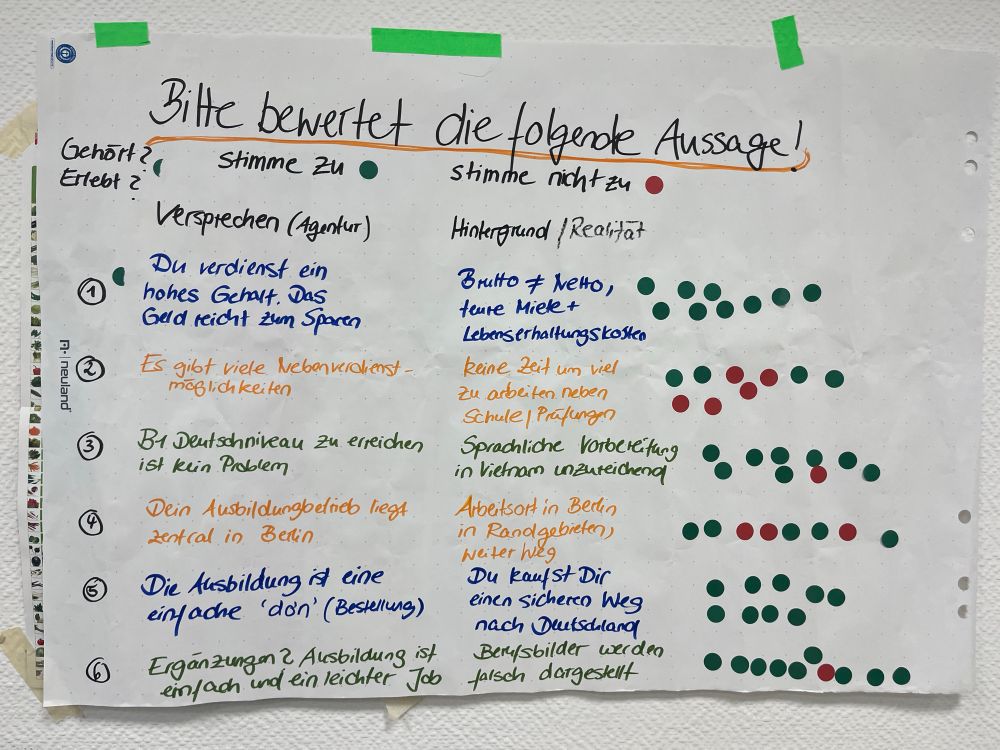 Bitte bewertet die folgende Aussage!
Gehört?
Erlebt?
stimme zu
stimme nicht zu
Versprechen (Agentur)
Hintergrund / Realität
1
Du verdienst ein
hohes Gehalt. Das
Geld reicht zum Sparen
Brutto ≠ Netto,
teure Miete +
Lebenserhaltungskosten
2
Es gibt viele Nebenverdienst-
möglichkeiten
keine Zeit um viel
zu arbeiten neben
Schule / Prüfungen
3
B1 Deutschniveau zu erreichen
ist kein Problem
Sprachliche Vorbereitung
in Vietnam unzureichend
4
Dein Ausbildungbetrieb liegt
zentral in Berlin
Arbeitsort in Berlin
in Randgebieten,
weiter Weg
5
Die Ausbildung ist eine
einfache 'đơn' (Bestellung)
Du kaufst Dir
einen sicheren Weg
nach Deutschland
6
Ergänzungen? Ausbildung ist
einfach und ein leichter Job
Berufsbilder werden
falsch dargestellt
neuland